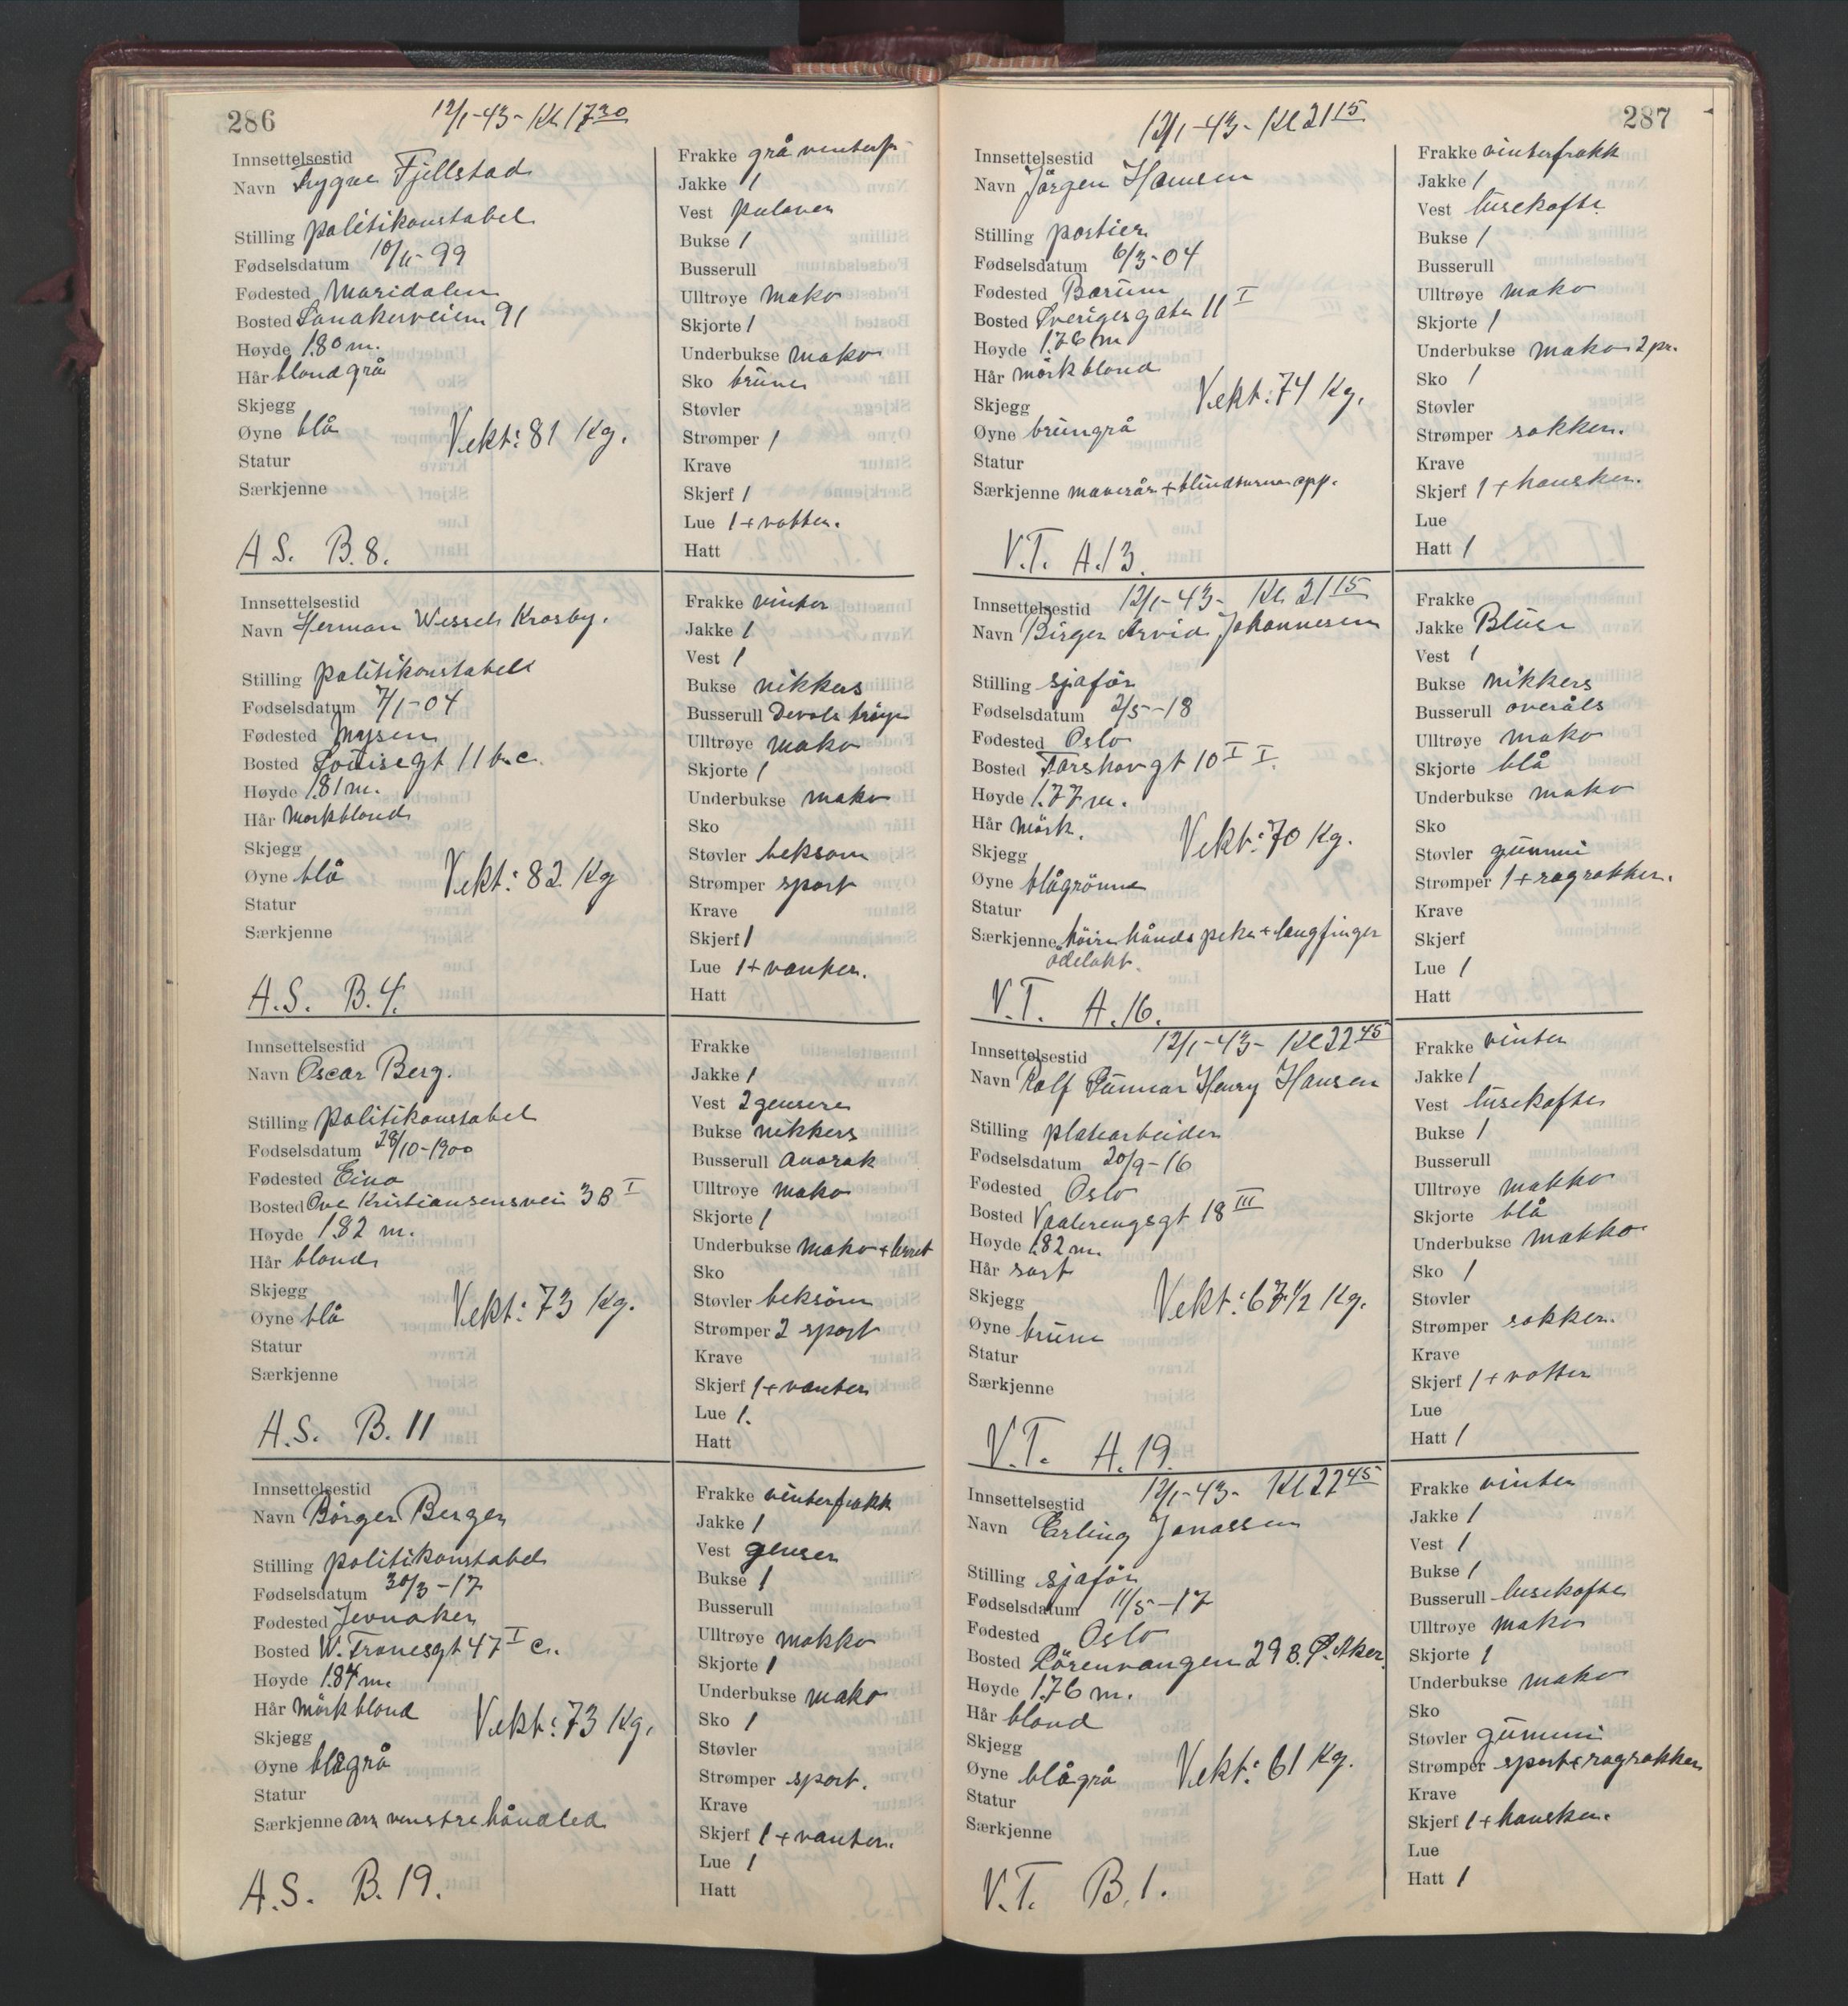 286
12/1-43- Kl 17 30
Innsettelsestid
Navn Trygve Fjellstad
Stilling politikonstabel
Fødselsdatum 10/11-99
Fødested Maridalen
Bosted Sanakerveien 91
Høyde 1.80 m.
Hår blond grå
Skjegg
Øyne blå Vekt: 81 Kg.
Statur
Særkjenne
A S. B. 8.
Frakke grå vinterfr
Jakke 1
Vest pulover
Bukse 1
Busserull
Ulltrøye mako
Skjorte 1
Underbukse mako
Sko brune
Støvler
Strømper 1
Krave
Skjerf 1
Lue 1 + votter.
Hatt
Innsettelsestid
Navn Herman Wessels Krosby.
Stilling politikonstabel
Fødselsdatum 7/1-04
Fødested Mysen
Bosted Louisegt 11 b. c.
Høyde 1.81 m.
Hår Mørkblond
Skjegg
Øyne blå Vekt: 82 Kg
Statur
Særkjenne
A.S. B. 4.
Frakke vinter
Jakke 1
Vest 1
Bukse nikkers
Busserull Devols trøye
Ulltrøye mako
Skjorte 1
Underbukse mako
Sko
Støvler beksøm
Strømper sport
Krave
Skjerf 1
Lue 1 + vanter.
Hatt
Innsettelsestid
Navn Oscar Berg.
Stilling politikonstabel
Fødselsdatum 28/10-1900
Fødested Eina
Bosted Ove Kristiansensvei 3 B I
Høyde 1.82 m.
Hår blond
Skjegg
Øyne blå Vekt: 73 Kg.
Statur
Særkjenne
A.S. B. 11
Frakke
Jakke 1
Vest 2 gensere
Bukse nikkers
Busserull Anorak
Ulltrøye mako
Skjorte 1
Underbukse mako + lerret
Sko
Støvler beksöm
Strømper 2 sport
Krave
Skjerf 1 + vanter
Lue 1.
Hatt
Innsettelsestid
Navn Börger Berger
Stilling politikonstabel
Fødselsdatum 30/3-17
Fødested Jevnaker
Bosted W. Tranesgt 47 I c.
Høyde 1.84 m.
Hår mörkblond
Skjegg Vekt: 73 Kg.
Øyne blågrå
Statur
Særkjenne arr venstre håndled
A.S. B. 19.
Frakke vinterfrakk
Jakke 1
Vest genser
Bukse 1
Busserull
Ulltrøye makko
Skjorte 1
Underbukse mako
Sko 1
Støvler
Strømper sport.
Krave
Skjerf 1 + vanter.
Lue 1
Hatt
287
12/1-43- Kl 21 15
Innsettelsestid
Navn Jörgen Hansen
Stilling portier
Fødselsdatum 6/3-04
Fødested Bærum
Bosted Sverigesgate 11 I
Høyde 1.76 m
Hår mörkblond
Skjegg Vekt: 74 Kg.
Øyne brungrå
Statur
Særkjenne mavesår + blindtarm opp.
V.T. A. 13.
Frakke vinterfrakk
Jakke 1
Vest lusekofte
Bukse 1
Busserull
Ulltrøye mako
Skjorte 1
Underbukse mako 2 pr.
Sko 1
Støvler
Strømper sokker.
Krave
Skjerf 1 + hansker.
Lue
Hatt 1
12/1-43- Kl 21 15
Innsettelsestid
Navn Birger Arvid Johannesen
Stilling sjaför
Fødselsdatum 2/5-18
Fødested Oslo
Bosted Torshovgt 10 I I.
Høyde 1.77 m.
Hår mörk.
Skjegg Vekt: 70 Kg.
Øyne blågrönne
Statur
Særkjenne höire hånds peke + langfinger
ödelakt.
V.T. A. 16.
Frakke
Jakke Bluse
Vest 1
Bukse nikkers
Busserull overåls
Ulltrøye mako
Skjorte blå
Underbukse mako
Sko
Støvler gummi
Strømper 1 + ragsokker.
Krave
Skjerf
Lue 1
Hatt
12/1-43- Kl 22 45
Innsettelsestid
Navn Rolf Gunnar Henry Hansen
Stilling platearbeider
Fødselsdatum 20/9-16
Fødested Oslo
Bosted Vaalerengsgt 18 III
Høyde 1.82 m.
Hår sort
Skjegg Vekt: 67 1/2 Kg.
Øyne brune
Statur
Særkjenne
V.T. A. 19.
Frakke vinter
Jakke 1
Vest lusekofte
Bukse 1
Busserull
Ulltrøye makko
Skjorte blå
Underbukse makko
Sko 1
Støvler
Strømper sokker.
Krave
Skjerf 1 + votter
Lue
Hatt 1
12/1-43- Kl 22 45
Innsettelsestid
Navn Erling Jonassen
Stilling sjaför
Fødselsdatum 11/5-17
Fødested Oslo
Bosted Lörenvangen 29 B. Ø. Aker.
Høyde 1.76 m.
Hår blond
Skjegg
Øyne blågrå Vekt: 61 Kg.
Statur
Særkjenne
V.T. B. 1.
Frakke vinter
Jakke 1
Vest 1
Bukse 1
Busserull lusekofte
Ulltrøye mako
Skjorte 1
Underbukse mako
Sko
Støvler gummi
Strømper sport + ragsokker
Krave
Skjerf 1 + hansker.
Lue
Hatt 1